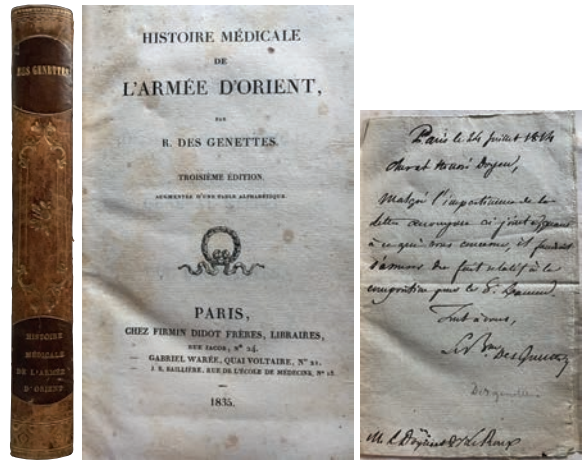 DES GENETTES
HISTOIRE
MÉDICALE
DE L'ARMÉE
D'ORIENT
HISTOIRE MÉDICALE
DE
L'ARMÉE D'ORIENT,
PAR
R. DES GENETTES.
TROISIÈME ÉDITION,
AUGMENTÉE D'UNE TABLE ALPHABÉTIQUE.
PARIS,
CHEZ FIRMIN DIDOT FRÈRES, LIBRAIRES,
RUE JACOB, N° 24.
— GABRIEL WARÉE, QUAI VOLTAIRE, N° 21.
— J. B. BAILLIÈRE, RUE DE L'ÉCOLE DE MÉDECINE, N° 13.
1835.
Paris le 24 Juillet 1814
cher et honoré Doyen,
Malgré l'impertinence de la
lettre anonyme ci-jointe
à ce qui vous concerne, il faudrait
s'assurer du fait relatif à la
pour le
Tout à vous,
Le Bon Des Genettes
Desgenettes
M. Le Doyen Le Roux